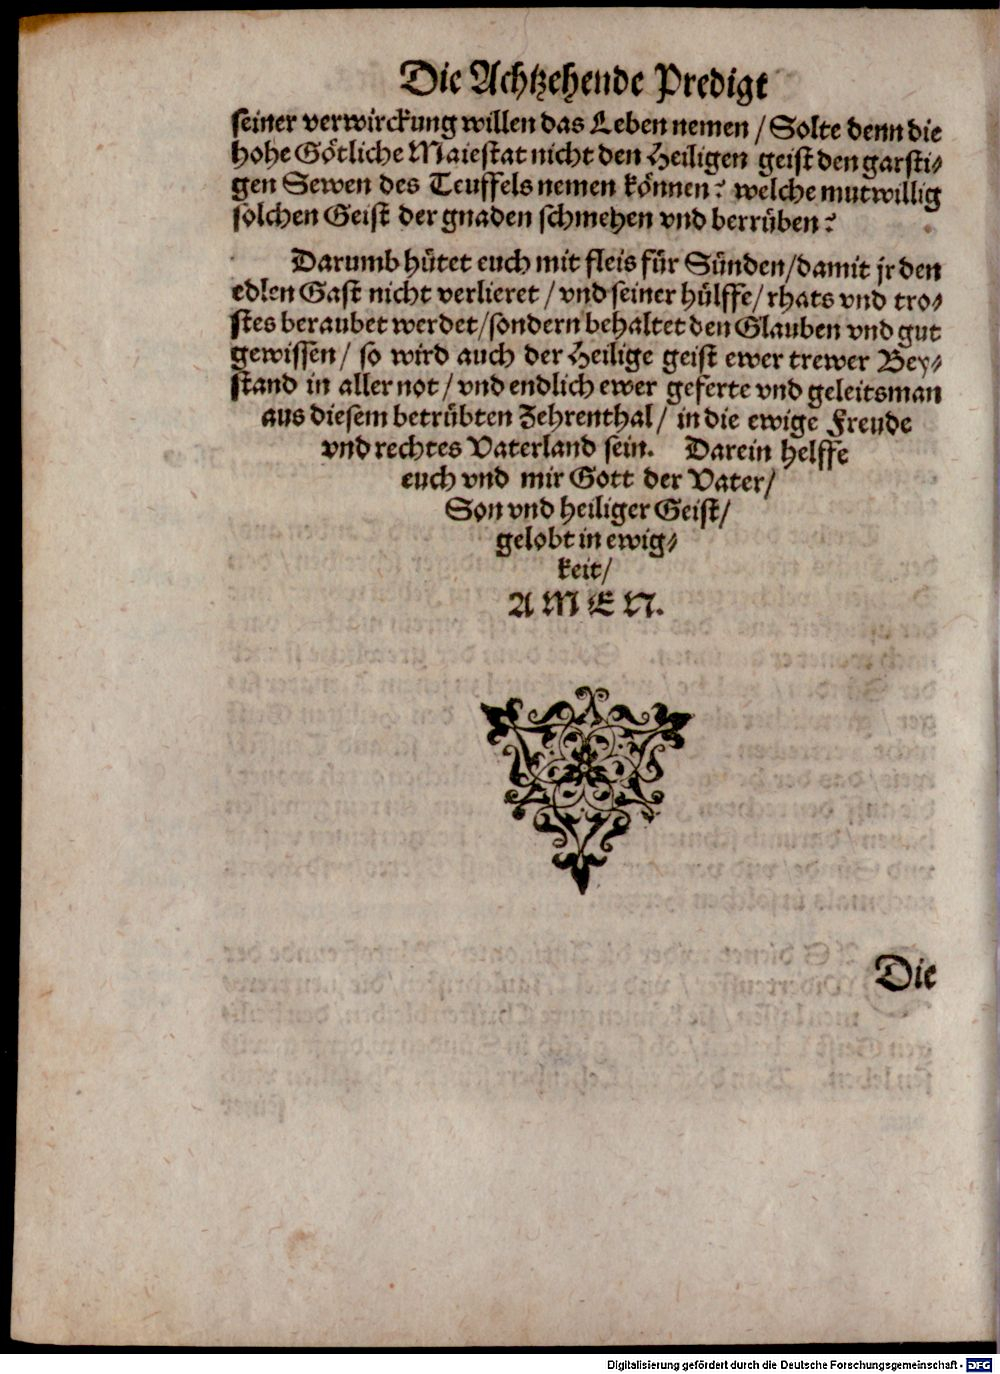 Die Achtzehende Predigt
seiner verwirckung willen das Leben nemen / Solte denn die
hohe Götliche Maiestat nicht den Heiligen geist den garsti⸗
gen Sewen des Teuffels nemen können? welche mutwillig
solchen Geist der gnaden schmehen vnd berrüben?
Darumb hütet euch mit fleis für Sünden/damit jr den
edlen Gast nicht verlieret / vnd seiner hülffe/ rhats vnd tro⸗
stes beraubet werdet/sondern behaltet den Glauben vnd gut
gewissen/ so wird auch der Heilige geist ewer trewer Bey⸗
stand in aller not / vnd endlich ewer geferte vnd geleitsman
aus diesem betrübten Zehrenthal/ in die ewige Freude
vnd rechtes Vaterland sein. Darein helffe
euch vnd mir Gott der Vater/
Son vnd heiliger Geist/
gelobt in ewig⸗
keit/
AMEN.
Die
Digitalisierung gefördert durch die Deutsche Forschungsgemeinschaft - DFG